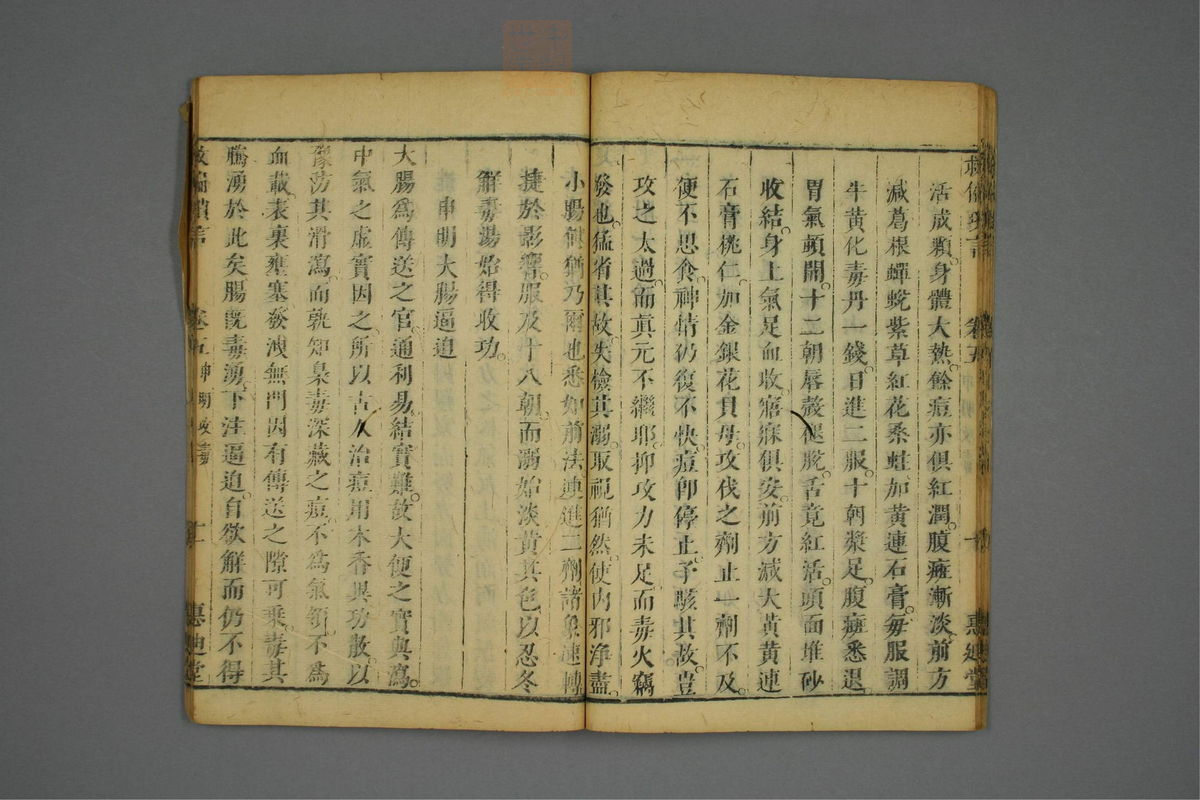 活成顆身體大熱餘痘亦俱紅潤腹痘漸淡前方
減葛根蟬蛻紫草紅花桑蛀加黃連石膏每服調
牛黃化毒丹一錢日進二服十朝漿足腹痘悉退
胃氣頓開十二朝唇殼褪脫舌竟紅活頭面堆砂
收結身上氣足血收寤寐俱安前方減大黃黃連
石膏桃仁加金銀花貝母攻伐之劑止一劑不及
便不思食神情仍復不快痘卽停止予駭其故豈
攻之太過而眞元不繼耶抑攻力未足而毒火竊
發也猛省其故失檢其溺取視猶然使內邪淨盡
小腸何猶乃爾也悉如前法連進二劑諸象速轉
捷於影響服及十八朝而溺始淡黃其色以忍冬
解毒湯始得收功
申明大腸逼迫
大腸爲傳送之官通利易結實難故大便之實與瀉
中氣之虛實因之所以古人治痘用木香異功散以
豫防其滑瀉而孰知梟毒深藏之痘不爲氣領不爲
血載表裏壅塞發洩無門因有傳送之隙可乘毒其
騰湧於此矣腸旣毒湧下注逼迫自欲解而仍不得
救偏瑣言 卷五 申明攻毒 十一 惠迪堂